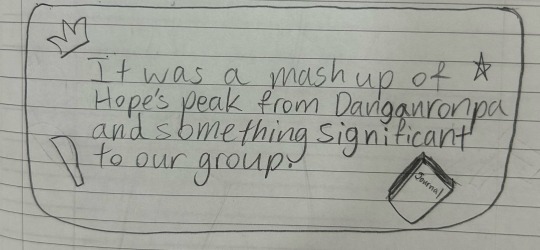 It was a mash up of
Hope's peak from Danganronpa
and something significant
to our group.
Journal